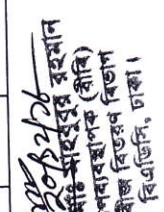 মোঃ মাহবুবুর রহমান
উপব্যবস্থাপক (বীবি)
বীজ বিতরণ বিভাগ
বিএডিসি, ঢাকা।